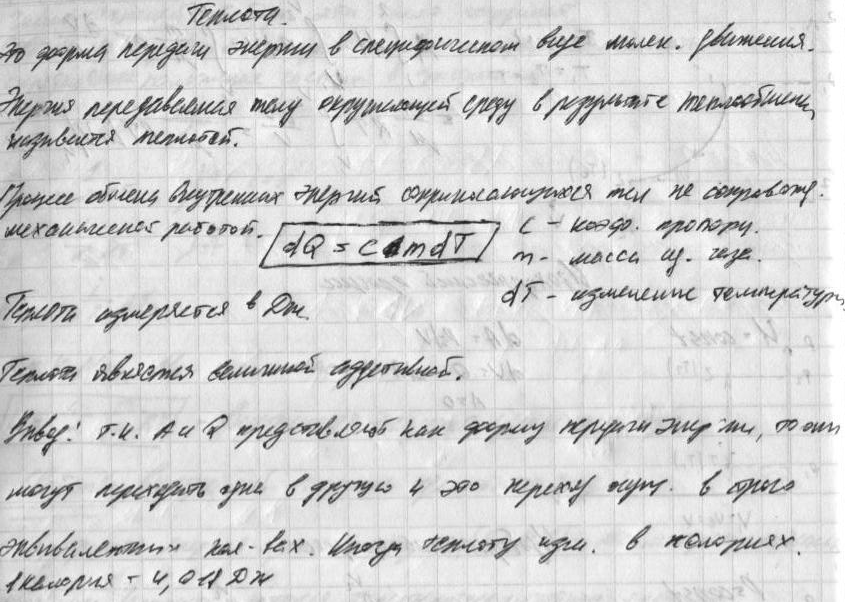 Теплота.
Это форма передачи энергии в специфическом виде молек. движения.
Энергия передаваемая телу окружающей среду в результате теплообмена
называется теплотой.
Процесс обмена внутренних энергий соприкасающихся тел не сопровожд.
механической работой. dQ = C m dT C - коэф. пропорц.
m - масса ид. газа.
dT - изменение температуры
Теплота измеряется в Дж.
Теплота является величиной аддетивной.
Вывод: т.к. A и Q представляют как форму передачи энергии, то они
могут переходить одна в другую и это переход осущ. в строго
эквивалентных кол-вах. Иногда теплоту изм. в калориях.
1 калория = 4,018 Дж